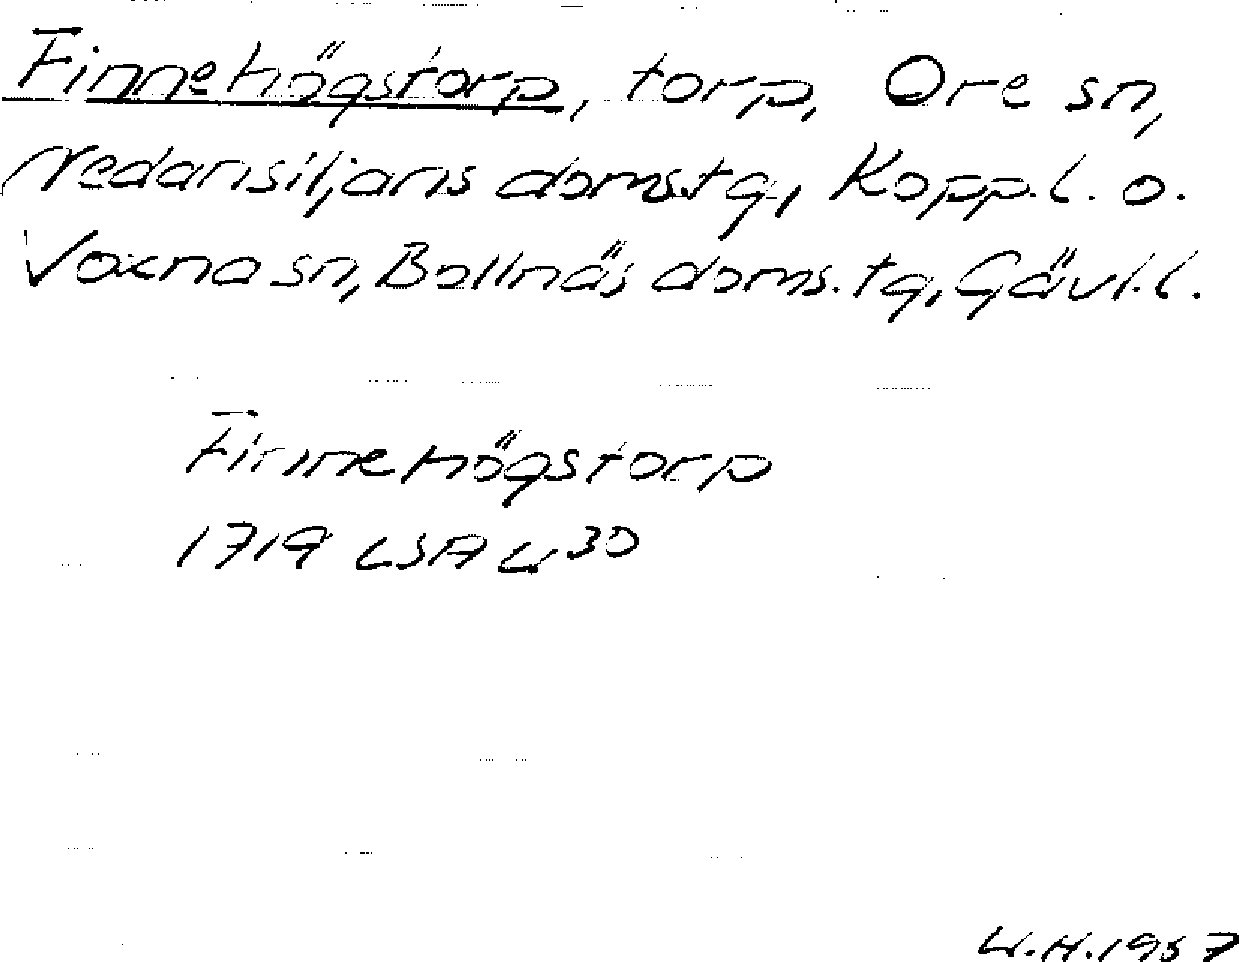 Finnehögstorp, torp, Ore sn,
Nedansiljans doms.tg., Kopp.l. o.
Voxna sn, Bollnäs doms.tg, Gävl.l.
Finnehögstorp
1719 LSA W 30
W.H. 1957